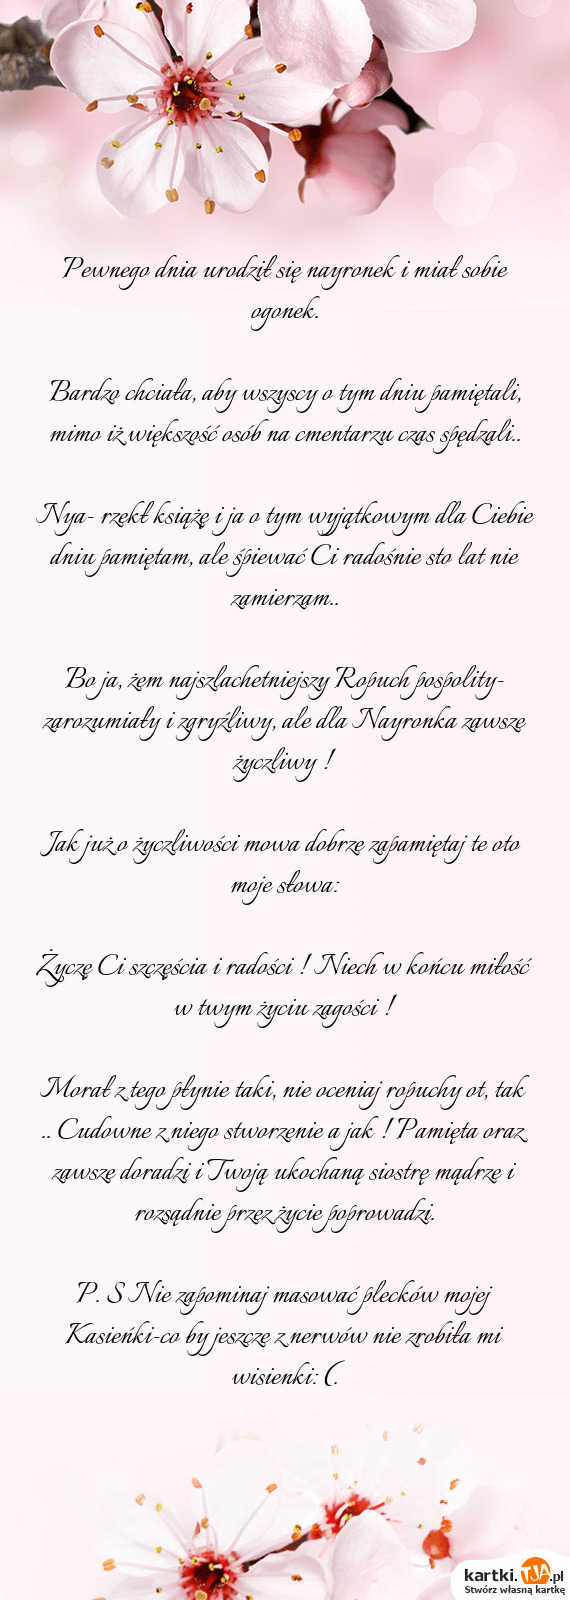 Pewnego dnia urodził się nayronek i miał sobie
ogonek.
Bardzo chciała, aby wszyscy o tym dniu pamiętali,
mimo iż większość osób na cmentarzu czas spędzali..
Nya- rzekł książę i ja o tym wyjątkowym dla Ciebie
dniu pamiętam, ale śpiewać Ci radośnie sto lat nie
zamierzam..
Bo ja, żem najszlachetniejszy Ropuch pospolity-
zarozumiały i zgryźliwy, ale dla Nayronka zawsze
życzliwy !
Jak już o życzliwości mowa dobrze zapamiętaj te oto
moje słowa:
Życzę Ci szczęścia i radości ! Niech w końcu miłość
w twym życiu zagości !
Morał z tego płynie taki, nie oceniaj ropuchy ot, tak
.. Cudowne z niego stworzenie a jak ! Pamięta oraz
zawsze doradzi i Twoją ukochaną siostrę mądrze i
rozsądnie przez życie poprowadzi.
P. S Nie zapominaj masować plecków mojej
Kasieńki-co by jeszcze z nerwów nie zrobiła mi
wisienki: (.
kartki.TJA.pl
Stwórz własną kartkę